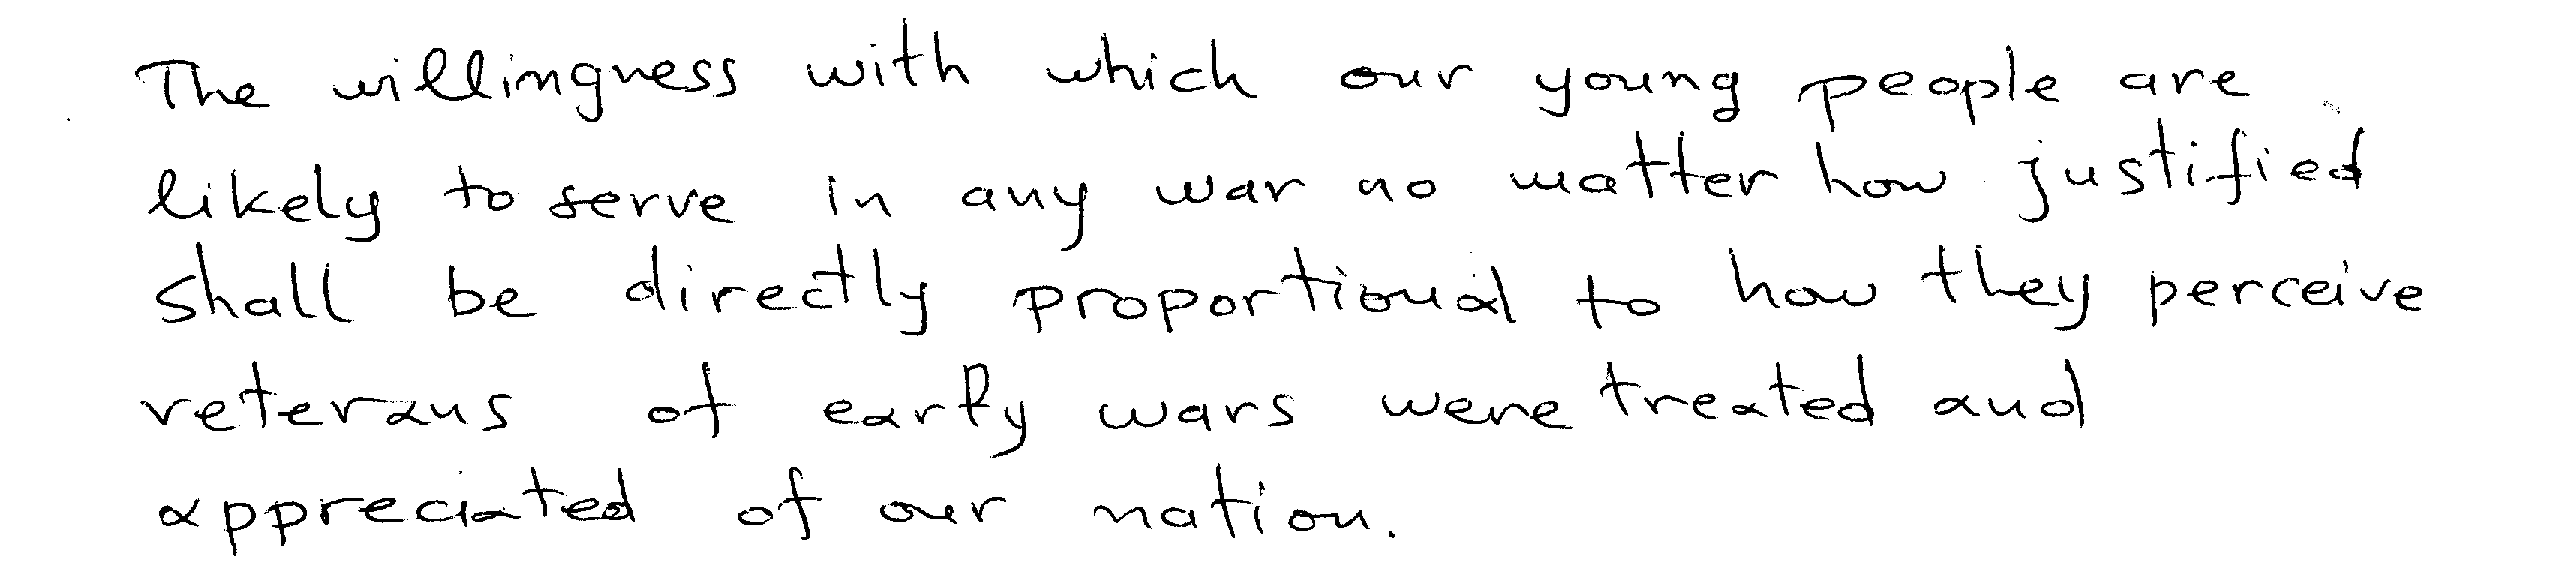 The willingness with which our young people are
likely to serve in any war no matter how justified
shall be directly proportional to how they perceive
veterans of early wars were treated and
appreciated of our nation.